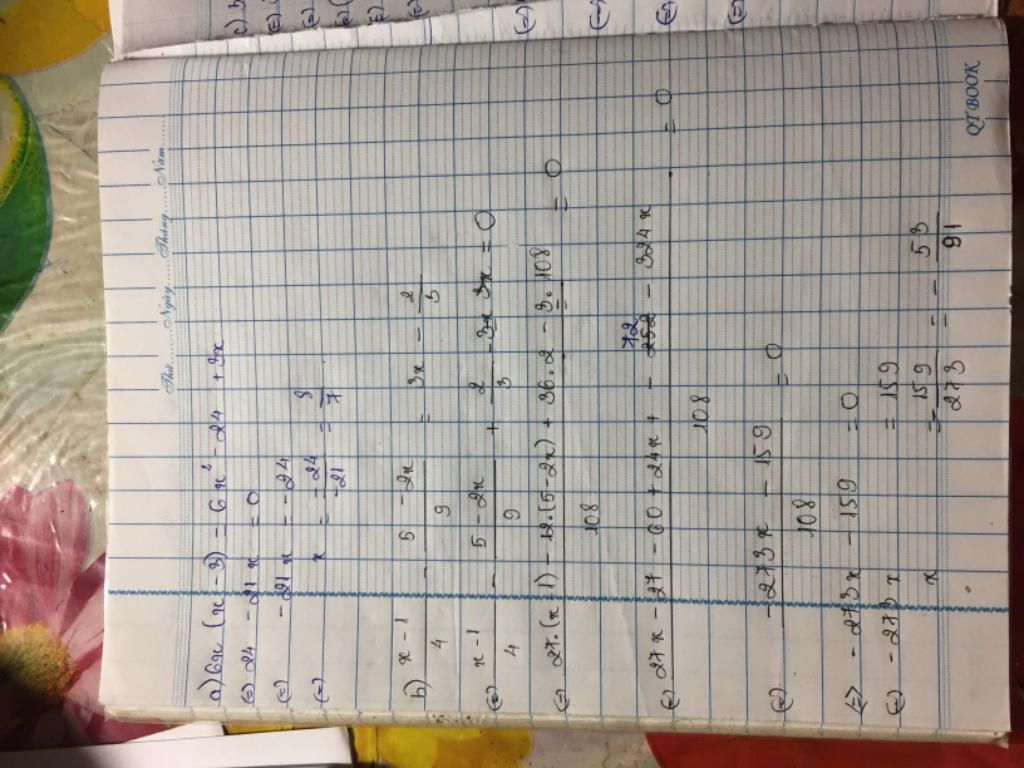 Thứ.........Ngày.........Tháng.........Năm.........
a) 6x (x - 3) = 6x² - 24 + 3x
(=) 24 - 21x = 0
(=) - 21x = - 24
(=) x = -24/-21 = 8/7
b) x-1/4 - 5-2x/9 = 3x - 2/3
(=) x-1/4 - 5-2x/9 + 2/3 - 3x = 0
(=) 27.(x-1) - 12.(5-2x) + 36.2 - 3.108/108 = 0
(=) 27x - 27 - 60 + 24x + 72 - 324x/108 = 0
(=) -273x - 159/108 = 0
<=> - 273x - 159 = 0
(=) - 273x = 159
x = 159/273 = - 53/91
QTBOOK